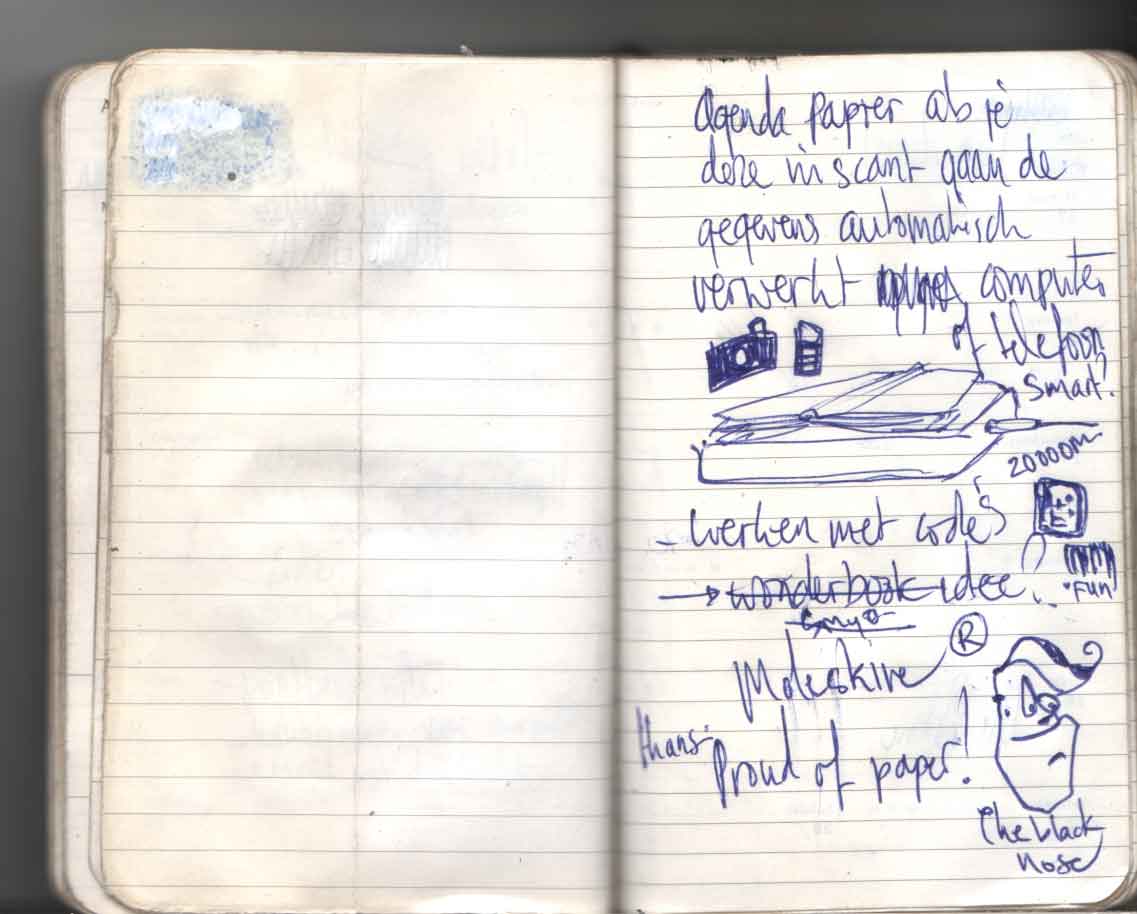 Agenda papier als je
deze inscant gaan de
gegevens automatisch
verwerkt computer
of telefoon
Smart?
20000M
- werken met code's
→ wonderbook idee.
FUN
Moleskine ®
thans.
Proud of paper!
The black
nose